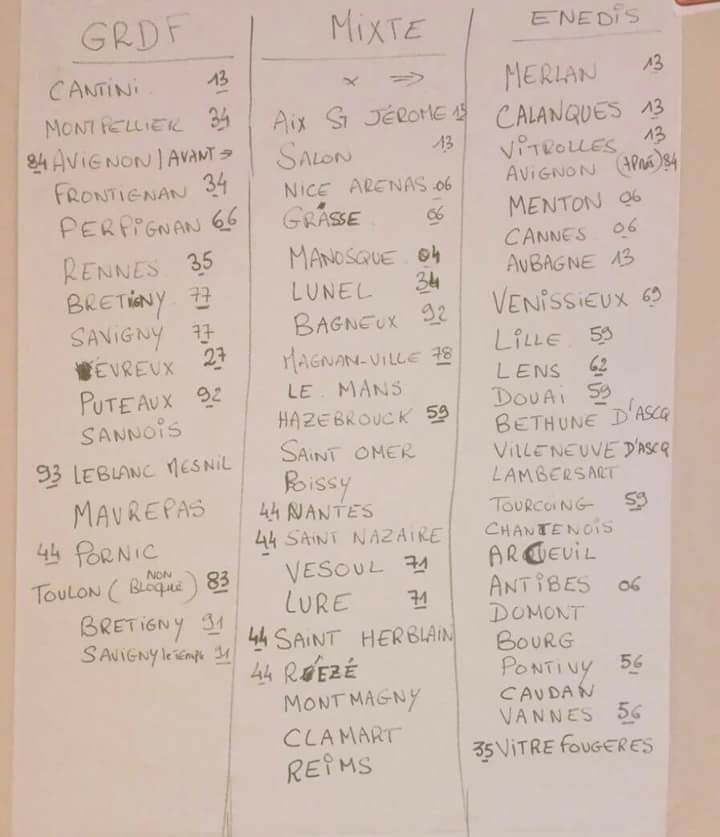 GRDF
CANTINI 13
MONTPELLIER 34
84 AVIGNON | AVANT ⇒
FRONTIGNAN 34
PERPIGNAN 66
RENNES 35
BRETIGNY 77
SAVIGNY 77
ÉVREUX 27
PUTEAUX 92
SANNOIS
93 LEBLANC MESNIL
MAUREPAS
44 PORNIC
TOULON (NON BLOQUÉ) 83
BRETIGNY 91
SAVIGNY le Temp 91
MIXTE
x ⇒
AIX ST JÉROME 13
SALON 13
NICE ARENAS 06
GRASSE 06
MANOSQUE 04
LUNEL 34
BAGNEUX 92
MAGNAN-VILLE 78
LE MANS
HAZEBROUCK 59
SAINT OMER
POISSY
44 NANTES
44 SAINT NAZAIRE
VESOUL 71
LURE 71
44 SAINT HERBLAIN
44 REZÉ
MONTMAGNY
CLAMART
REIMS
ENEDIS
MERLAN 13
CALANQUES 13
VITROLLES 13
AVIGNON 84
MENTON 06
CANNES 06
AUBAGNE 13
VENISSIEUX 69
LILLE 59
LENS 62
DOUAI 59
BETHUNE D'ASCQ
VILLENEUVE D'ASCQ
LAMBERSART
TOURCOING 59
CHANTENOIS
ARCUEIL
ANTIBES 06
DOMONT
BOURG
PONTIVY 56
CAUDAN
VANNES 56
35 VITRE FOUGERES